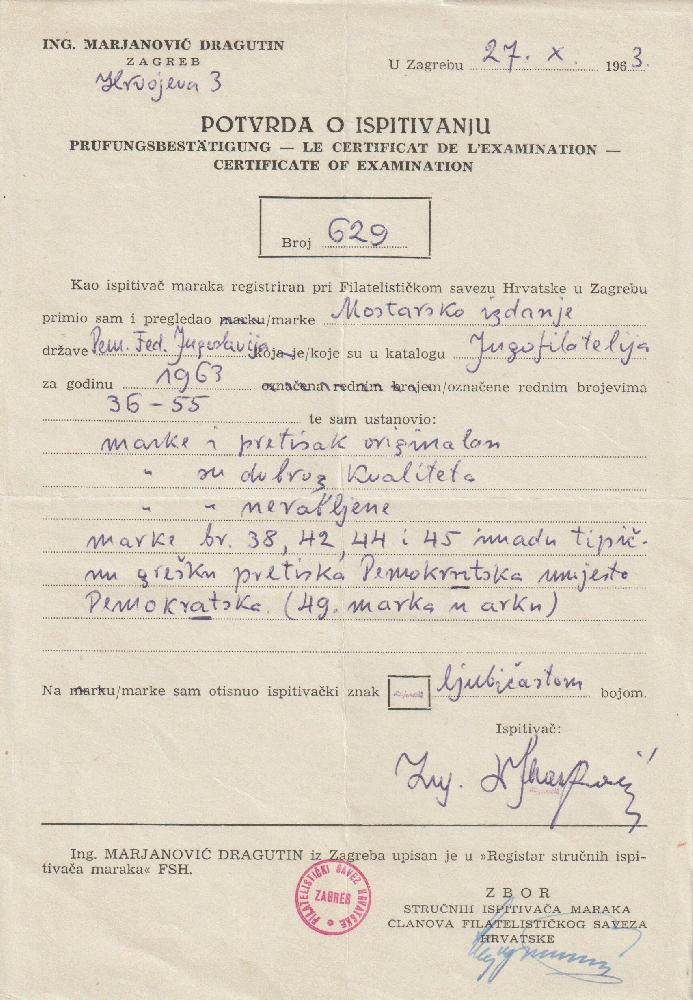 ING. MARJANOVIĆ DRAGUTIN
ZAGREB
Hrvojeva 3
U Zagrebu 27. X. 1963.
POTVRDA O ISPITIVANJU
PRUFUNGSBESTÄTIGUNG — LE CERTIFICAT DE L'EXAMINATION —
CERTIFICATE OF EXAMINATION
Broj 629
Kao ispitivač maraka registriran pri Filatelističkom savezu Hrvatske u Zagrebu
primio sam i pregledao marku/marke Mostarsko izdanje
države Dem. Fed. Jugoslavija koja je/koje su u katalogu Jugofilatelija
za godinu 1963 označena rednim brojem/označene rednim brojevima
36-55 te sam ustanovio:
marke i pretisak originalan
" su dobrog kvaliteta
" " nerabljene
marke br. 38, 42, 44 i 45 imadu tipič-
nu grešku pretiska Demokrntska umjesto
Demokratska. (49. marka u arku)
Na marku/marke sam otisnuo ispitivački znak ljubičastom bojom.
Ispitivač:
Ing. DMarjanović
Ing. MARJANOVIĆ DRAGUTIN iz Zagreba upisan je u »Registar stručnih ispi-
tivača maraka« FSH.
FILATELISTIČKI SAVEZ HRVATSKE
ZAGREB
ZBOR
STRUČNIH ISPITIVAČA MARAKA
ČLANOVA FILATELISTIČKOG SAVEZA
HRVATSKE